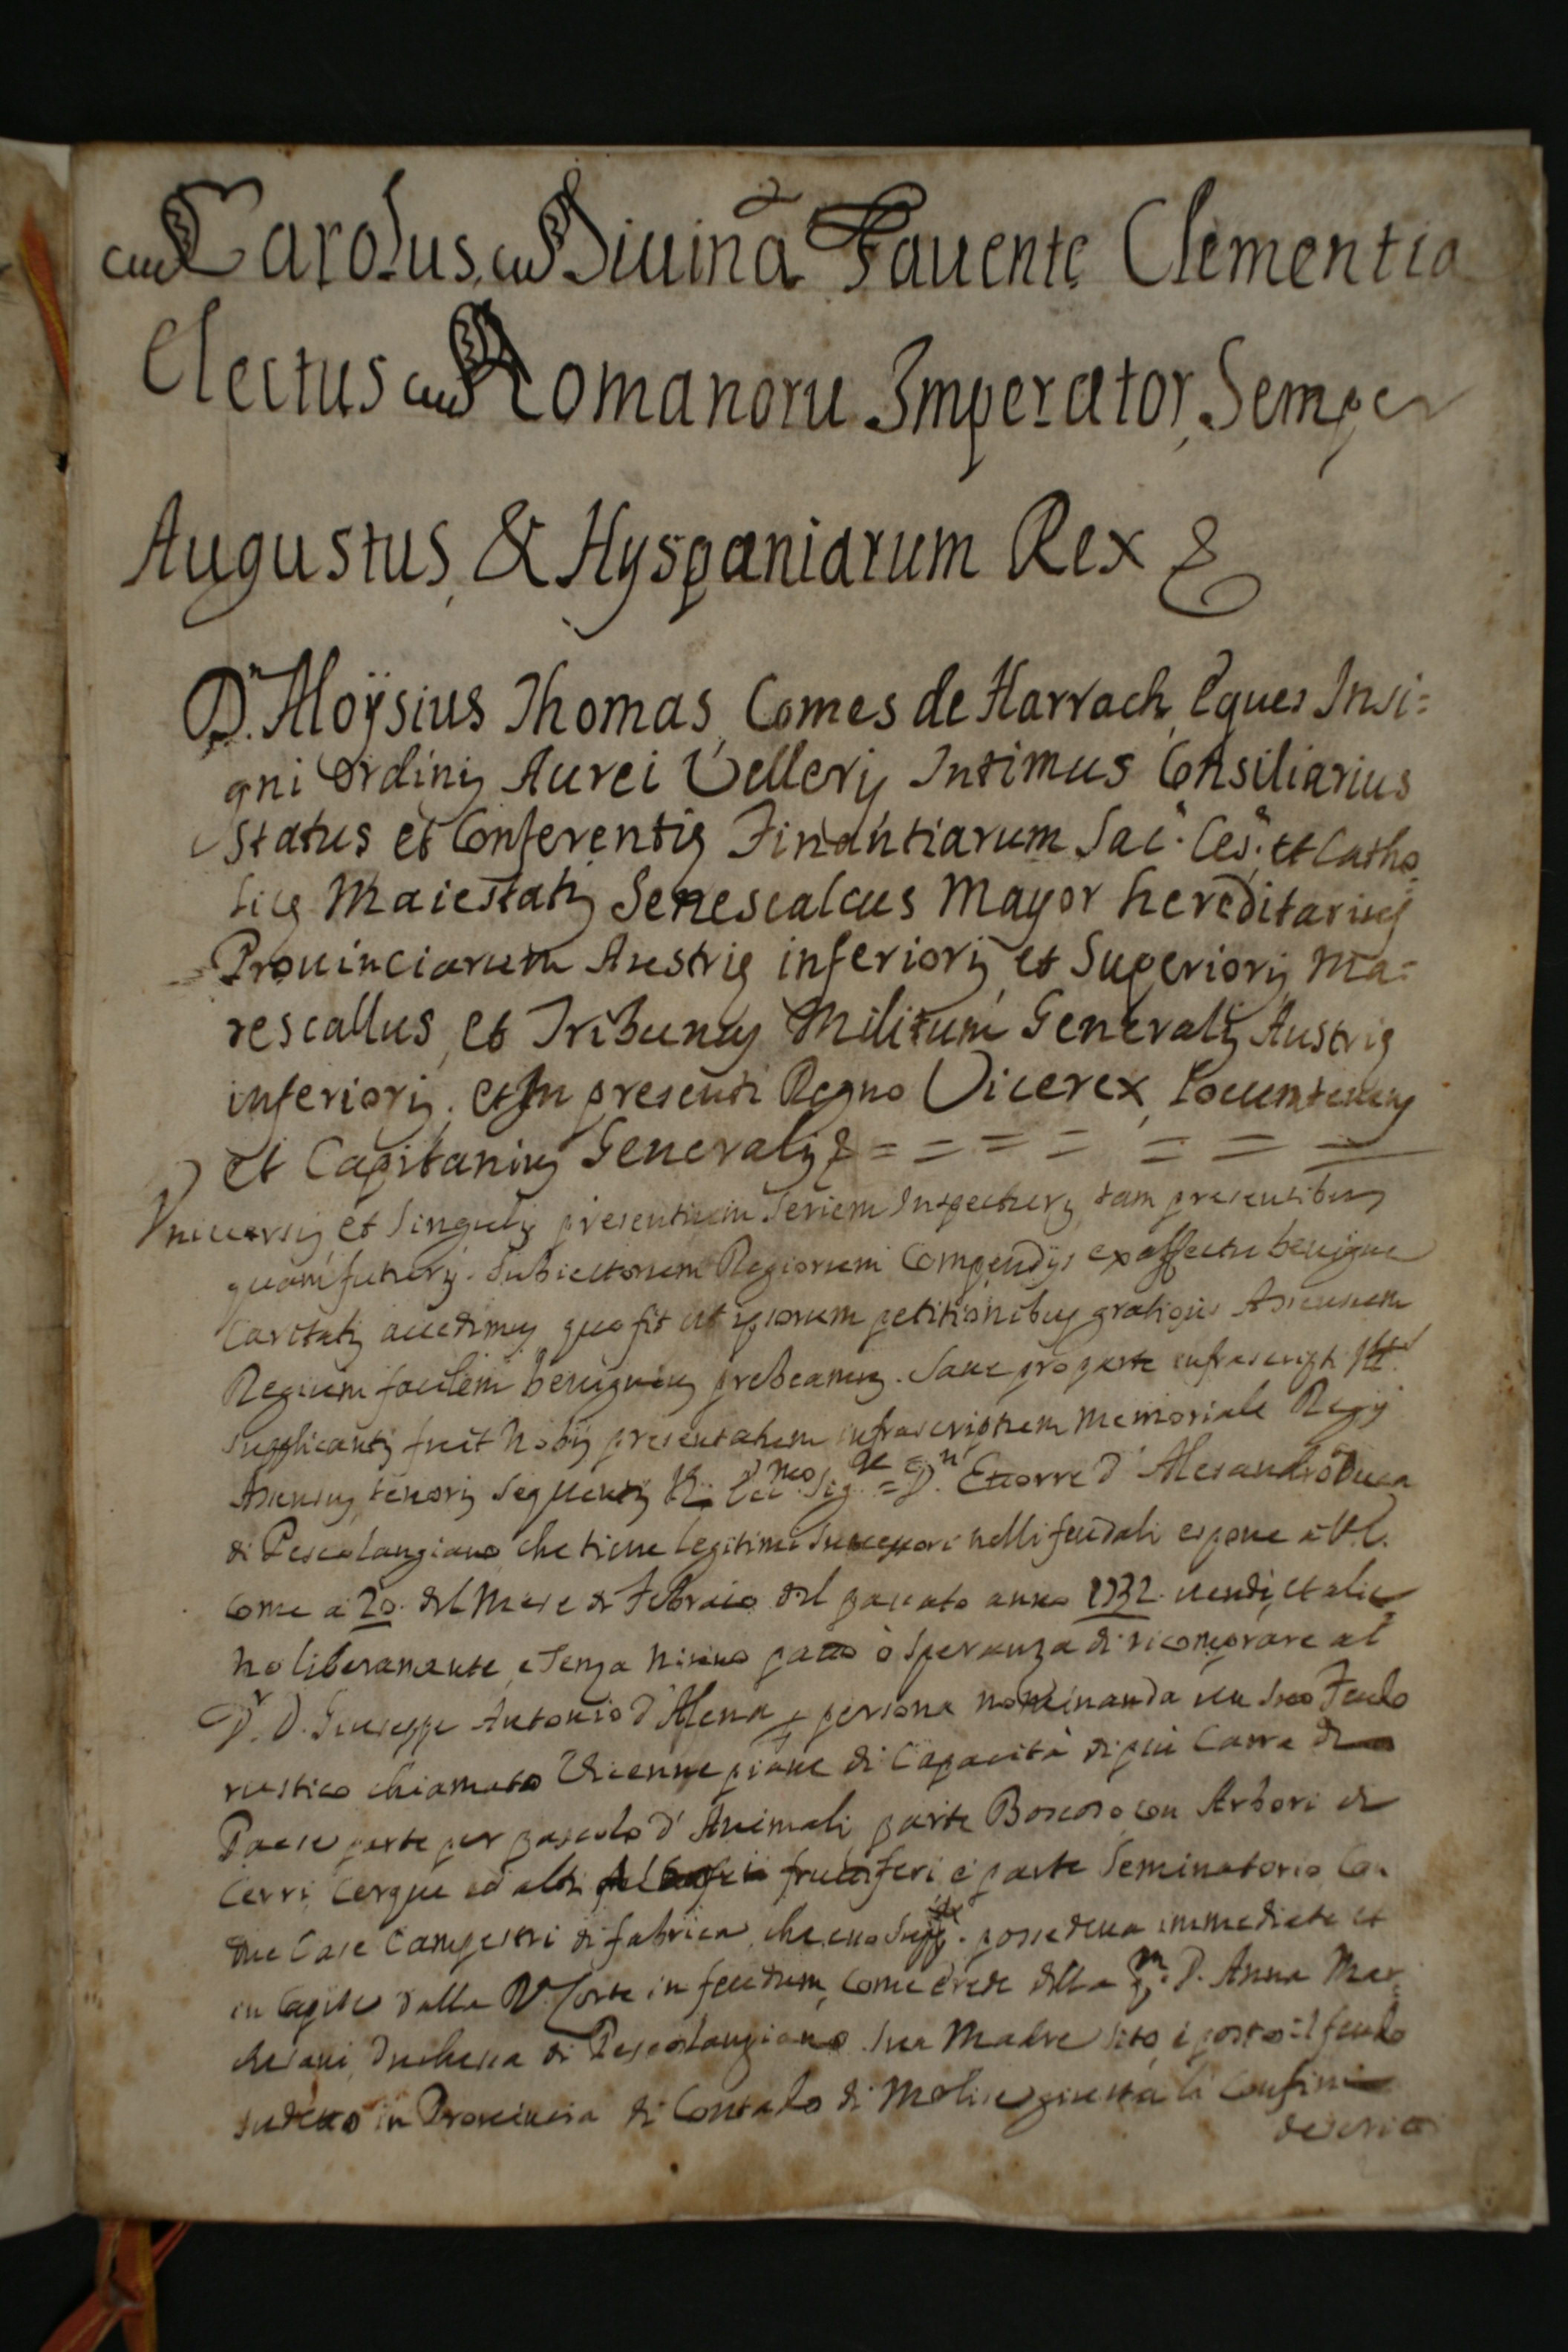 Carolus, Diuina Fauente Clementia
Electus Romanoru Imperator, Semper
Augustus, & Hyspaniarum Rex &
D.n Aloÿsius Thomas Comes de Harrach, Eques Insi=
gni Ordinis Aurei Velleris Intimus Consiliarius
Status et Conferentie Finantiarum Sac.e Ces.e et Catho
lice Maiestatis Senescalcus Mayor hereditarius
Prouinciarum Austrie inferioris et Superioris Ma=
rescallus, et Tribunus Militum Generalis Austrie
inferioris, et In presenti Regno Vicerex, Locumtenens
et Capitanius Generalis & = = = = = = =
Vniuersis et Singulis presentium Seriem Inspecturis tam presentibus
quam futuris. Subiectorum Regiorum Compendijs ex affectu benigne
Caritatis quo fit ut ipsorum petitionibus gratiosis Assensum
Regium facilem benignius prebeamus. Sane pro parte infrascripti
supplicantis fuit Nobis presentatum infrascriptum Memoriale Regij
Assensus tenoris sequentis Ecc.mo Sig.re = D.n Ettorre d'Alesandro Duca
di Pescolangiano che tiene legitimi successori nelli feudali espone à V.E.
come a 20. del Mese di Febraio del passato anno 1732. vendì, et alie
nò liberamente, e senza niuno patto ò speranza di ricomprare al
D.r D. Giuseppe Antonio d'Alena persona nominanda un suo Feudo
rustico chiamato Vicenne piane di Capacità di più Carra di
Paese parte per pascolo d'Animali, parte Boscoso con Arbori di
Cerri, Cerque ed altri fruttiferi, e parte Seminatorio Con
due Case Campestri di fabrica, che esso Supp.te possedeua immediate et
in Capite dalla R. Corte in feudum, come erede della q.m D. Anna Mar
chesani Duchessa di Pescolangiano sua Madre sito, e posto il feudo
sudetto in Prouincia di Contado di Molise giusta li Confini
descritti